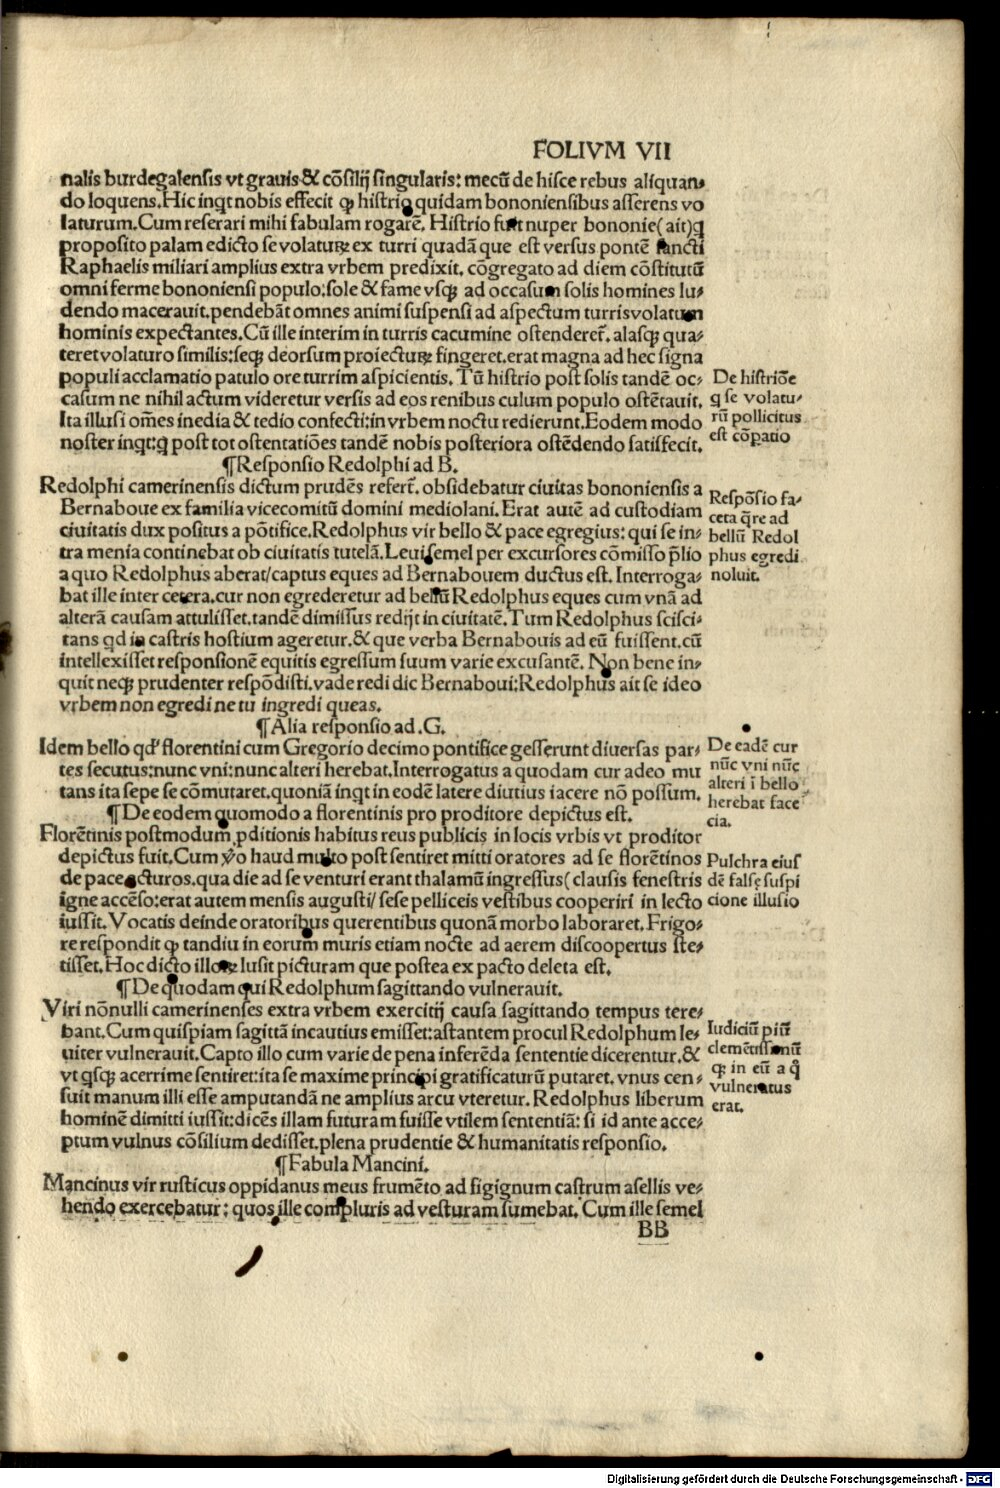 FOLIVM VII
nalis burdegalensis vt grauis & cōsilij singularis: mecū de hisce rebus aliquan⸗
do loquens. Hic inqt nobis effecit ꝙ histrio quidam bononiensibus asserens vo
laturum. Cum reserari mihi fabulam rogarē. Histrio fuit nuper bononie( ait)q
proposito palam edicto se volaturꝝ ex turri quadā que est versus pontē sancti
Raphaelis miliari amplius extra vrbem predixit. cōgregato ad diem cōstitutū
omni ferme bononiensi populo: sole & fame vsqꝫ ad occasum solis homines lu⸗
dendo macerauit. pendebāt omnes animi suspensi ad aspectum turris volatum
hominis expectantes. Cū ille interim in turris cacumine ostenderet̄. alasqꝫ qua⸗
teret volaturo similis: seqꝫ deorsum proiecturꝝ fingeret. erat magna ad hec signa
populi acclamatio patulo ore turrim aspicientis. Tū histrio post solis tandē oc⸗
casum ne nihil actum videretur versis ad eos renibus culum populo ostētauit.
Ita illusi om̄es inedia & tedio confecti: in vrbem noctu redierunt. Eodem modo
noster inqt: q post tot ostentatiōes tandē nobis posteriora ostēdendo satisfecit.
De histriōe
q se volatu⸗
rū pollicitus
est cōpatio
¶Responsio Redolphi ad B.
Redolphi camerinensis dictum prudēs refert̄. obsidebatur ciuitas bononiensis a
Bernaboue ex familia vicecomitū domini mediolani. Erat autē ad custodiam
ciuitatis dux positus a pōtifice. Redolphus vir bello & pace egregius: qui se in⸗
tra menia continebat ob ciuitatis tutelā. Leui semel per excursores cōmisso p̄lio
a quo Redolphus aberat/ captus eques ad Bernabouem ductus est. Interroga⸗
bat ille inter cetera. cur non egrederetur ad bellū Redolphus eques cum vnā ad
alterā causam attulisset. tandē dimissus redijt in ciuitatē. Tum Redolphus scisci⸗
tans qd in castris hostium ageretur. & que verba Bernabouis ad eū fuissent. cū
intellexisset responsionē equitis egressum suum varie excusantē. Non bene in⸗
quit neqꝫ prudenter respōdisti. vade redi dic Bernaboui: Redolphus ait se ideo
vrbem non egredi ne tu ingredi queas.
Respōsio fa⸗
ceta q̄re ad
bellū Redol
phus egredi
noluit.
¶Alia responsio ad .G.
Idem bello qd' florentini cum Gregorio decimo pontifice gesserunt diuersas par⸗
tes secutus: nunc vni: nunc alteri herebat. Interrogatus a quodam cur adeo mu
tans ita sepe se cōmutaret. quoniā inqt in eodē latere diutius iacere nō possum.
De eadē cur
nūc vni nūc
alteri ī bello
herebat face
cia.
¶De eodem quomodo a florentinis pro proditore depictus est.
Florētinis postmodum ꝓditionis habitus reus publicis in locis vrbis vt proditor
depictus fuit. Cum v̊o haud multo post sentiret mitti oratores ad se florētinos
de pace acturos. qua die ad se venturi erant thalamū ingressus( clausis fenestris
igne accēso: erat autem mensis augusti/ sese pelliceis vestibus cooperiri in lecto
iussit. Vocatis deinde oratoribus querentibus quonā morbo laboraret. Frigo⸗
re respondit ꝙ tandiu in eorum muris etiam nocte ad aerem discoopertus ste⸗
tisset. Hoc dicto illoꝝ lusit picturam que postea ex pacto deleta est.
Pulchra eius
dē false suspi
cione illusio
¶De quodam qui Redolphum sagittando vulnerauit.
Viri nōnulli camerinenses extra vrbem exercitij causa sagittando tempus tere⸗
bant. Cum quispiam sagittā incautius emisset: astantem procul Redolphum le⸗
uiter vulnerauit. Capto illo cum varie de pena inferēda sententie dicerentur. &
vt qsqꝫ acerrime sentiret: ita se maxime principi gratificaturū putaret. vnus cen⸗
suit manum illi esse amputandā ne amplius arcu vteretur. Redolphus liberum
hominē dimitti iussit: dicēs illam futuram fuisse vtilem sententiā: si id ante acce⸗
ptum vulnus cōsilium dedisset. plena prudentie & humanitatis responsio.
Iudiciū piū
clemētissimū
qꝫ in eū a q̊
vulneratus
erat.
¶Fabula Mancini.
Mancinus vir rusticus oppidanus meus frumēto ad figignum castrum asellis ve⸗
hendo exercebatur: quos ille compluris ad vesturam sumebat. Cum ille semel
BB
Digitalisierung gefördert durch die Deutsche Forschungsgemeinschaft - DFG